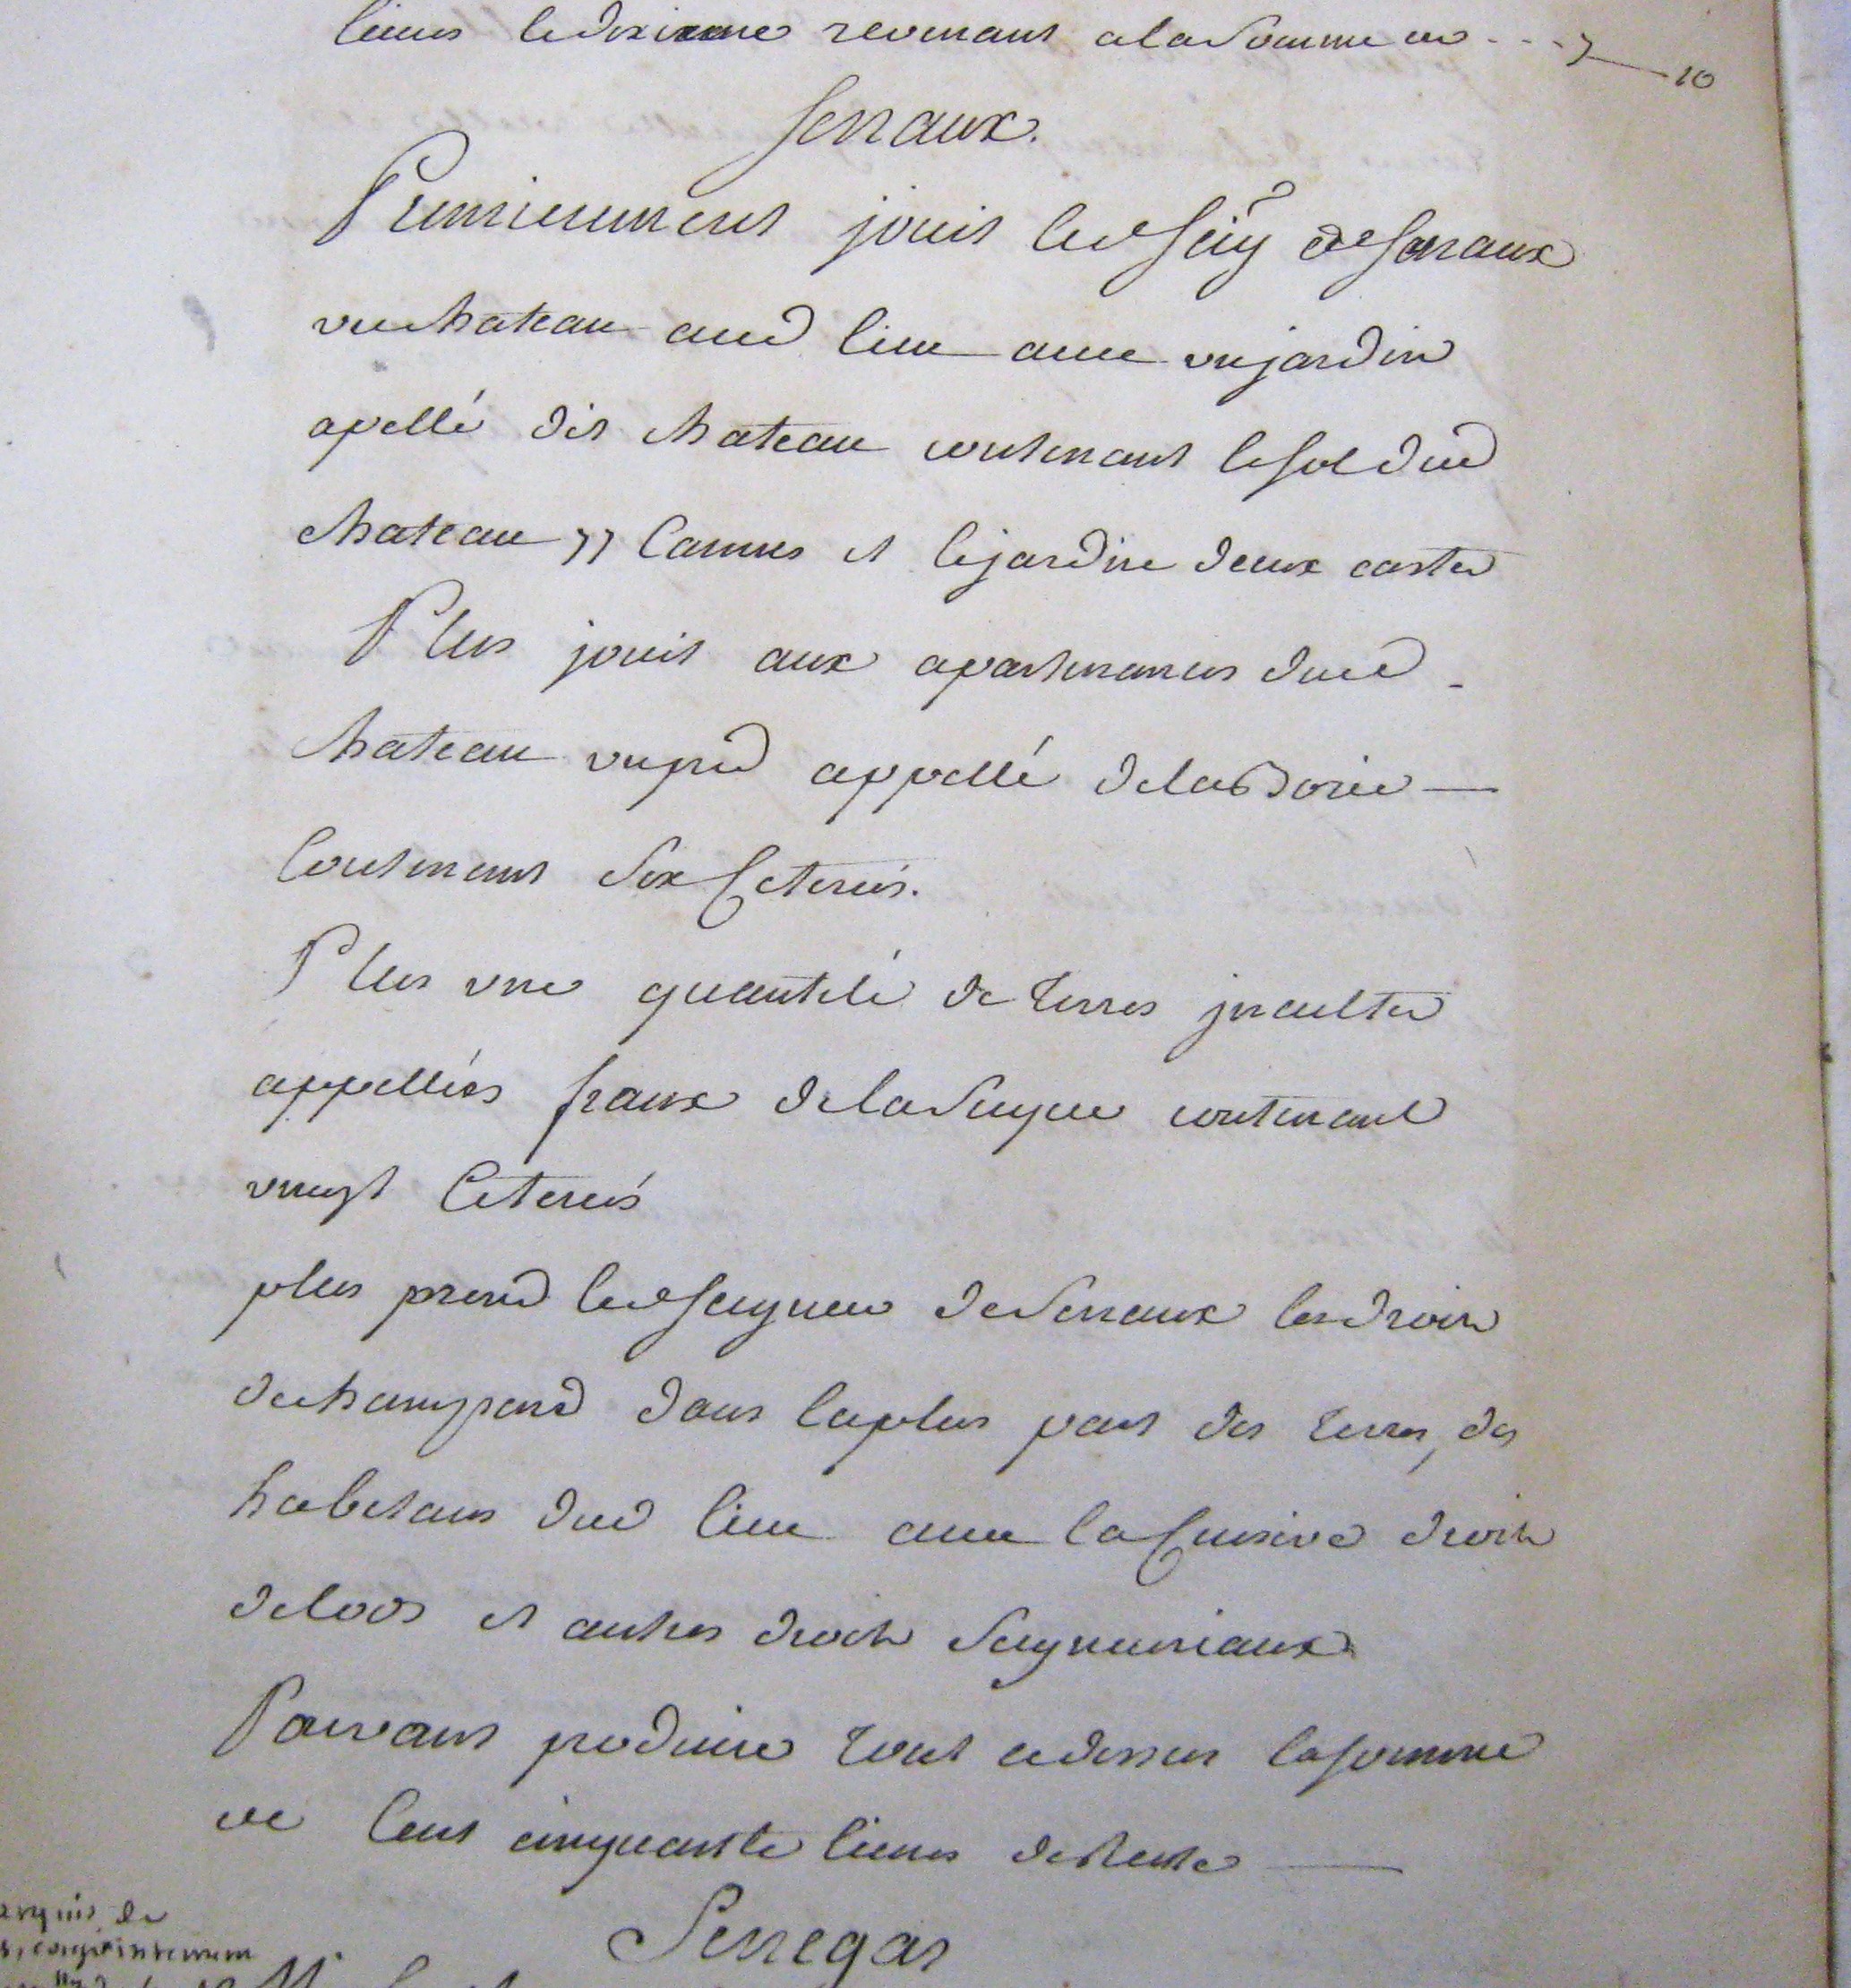 livres le dixieme revenant a la somme de - - - 7 — 10
Senaux.
Premierement jouit led seigr de Senaux
un chateau aud lieu avec un jardin
apellé dit chateau contenant le sol dud
chateau 77 Cannes et le jardin deux cartes
Plus jouit aux apartenances dud -
chateau un pred appellé de la Borie —
Contenant six Ceterées.
Plus une quantité de terres jncultes
appellées fraux de la contenant
vingt Ceterées
plus prend led seigneur de Senaux les droits
de champard dans la plus part des terres des
habitans dud lieu avec la Censive droits
de lods et autres droits seigneuriaux
Pouvant produire tout cedessus la somme
de Cent cinquante livres de Rente —
Senegas
arquis de